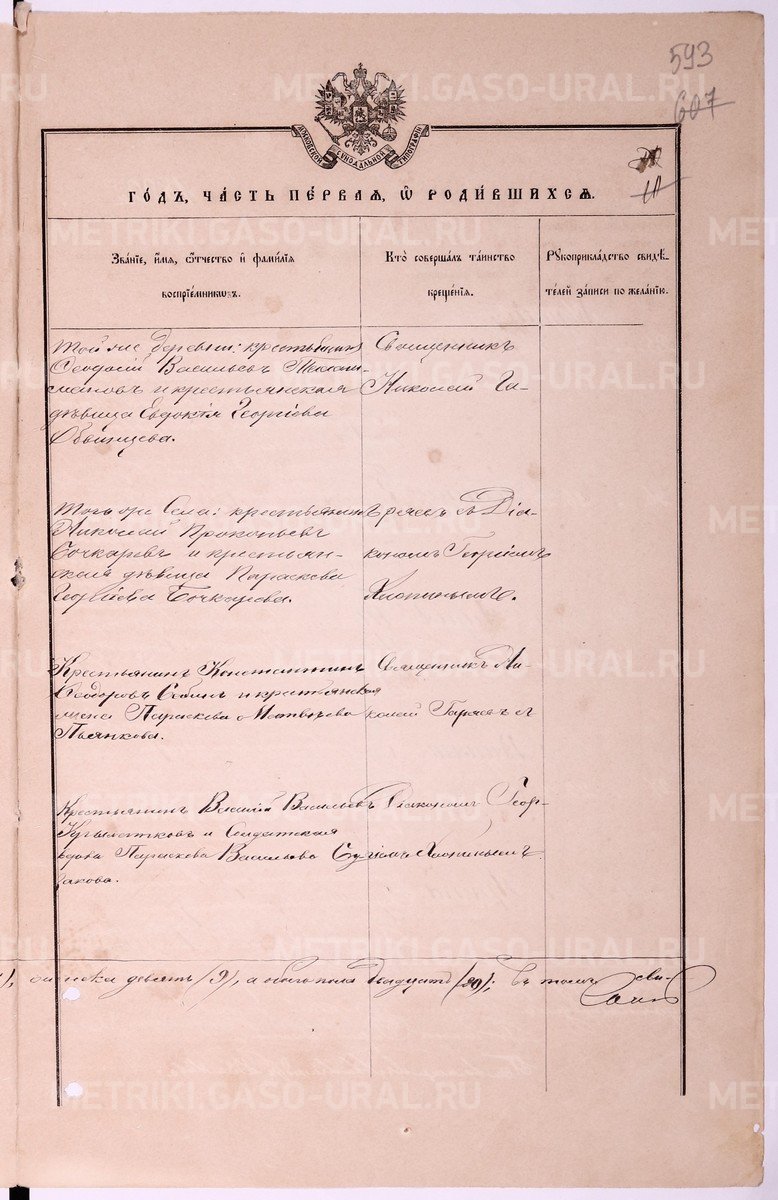 593
607
МОСКОВСКОЙ СѴНОДАЛЬНОЙ ТИПОГРАФІИ
ГО́ДЪ, ЧА́СТЬ ПЕ́РВАЯ, Ѡ҆ РОДИ́ВШИХСЯ.
Зва́ніе, и҆́мя, ѻ҆́тчество и҆ фами́лія
воспріе́мниковъ.
Кто̀ соверша́лъ та́инство
креще́нія.
Рꙋкоприкла́дство свидѣ́-
телей за́писи по жела́нію.
Той же деревни: крестьянинъ
Ѳеодосій Васильевъ
и крестьянская
дѣвица Евдокія Георгіева
Обвинцева.
Священникъ
Николай Га-
Того же Села: крестьянинъ
Николай Прокопьевъ
Бочкаревъ и крестьян-
ская дѣвица Параскева
Георгіева Бочкарева.
ряевъ съ Діа-
кономъ Георгіемъ
Хлопинымъ.
Крестьянинъ Константинъ
Ѳеодоровъ и крестьянская
жена Параскева Матвѣева
Пьянкова.
Священникъ Ни-
колай Гаряевъ съ
Крестьянинъ Василій Васильевъ
и Солдатская
вдова Параскева Васильева
закова.
Діакономъ Геор-
гіемъ Хлопинымъ.
женска девять /9/, а обоего пола двадцать /20/; въ томъ сви-
METRIKI.GASO-URAL.RU